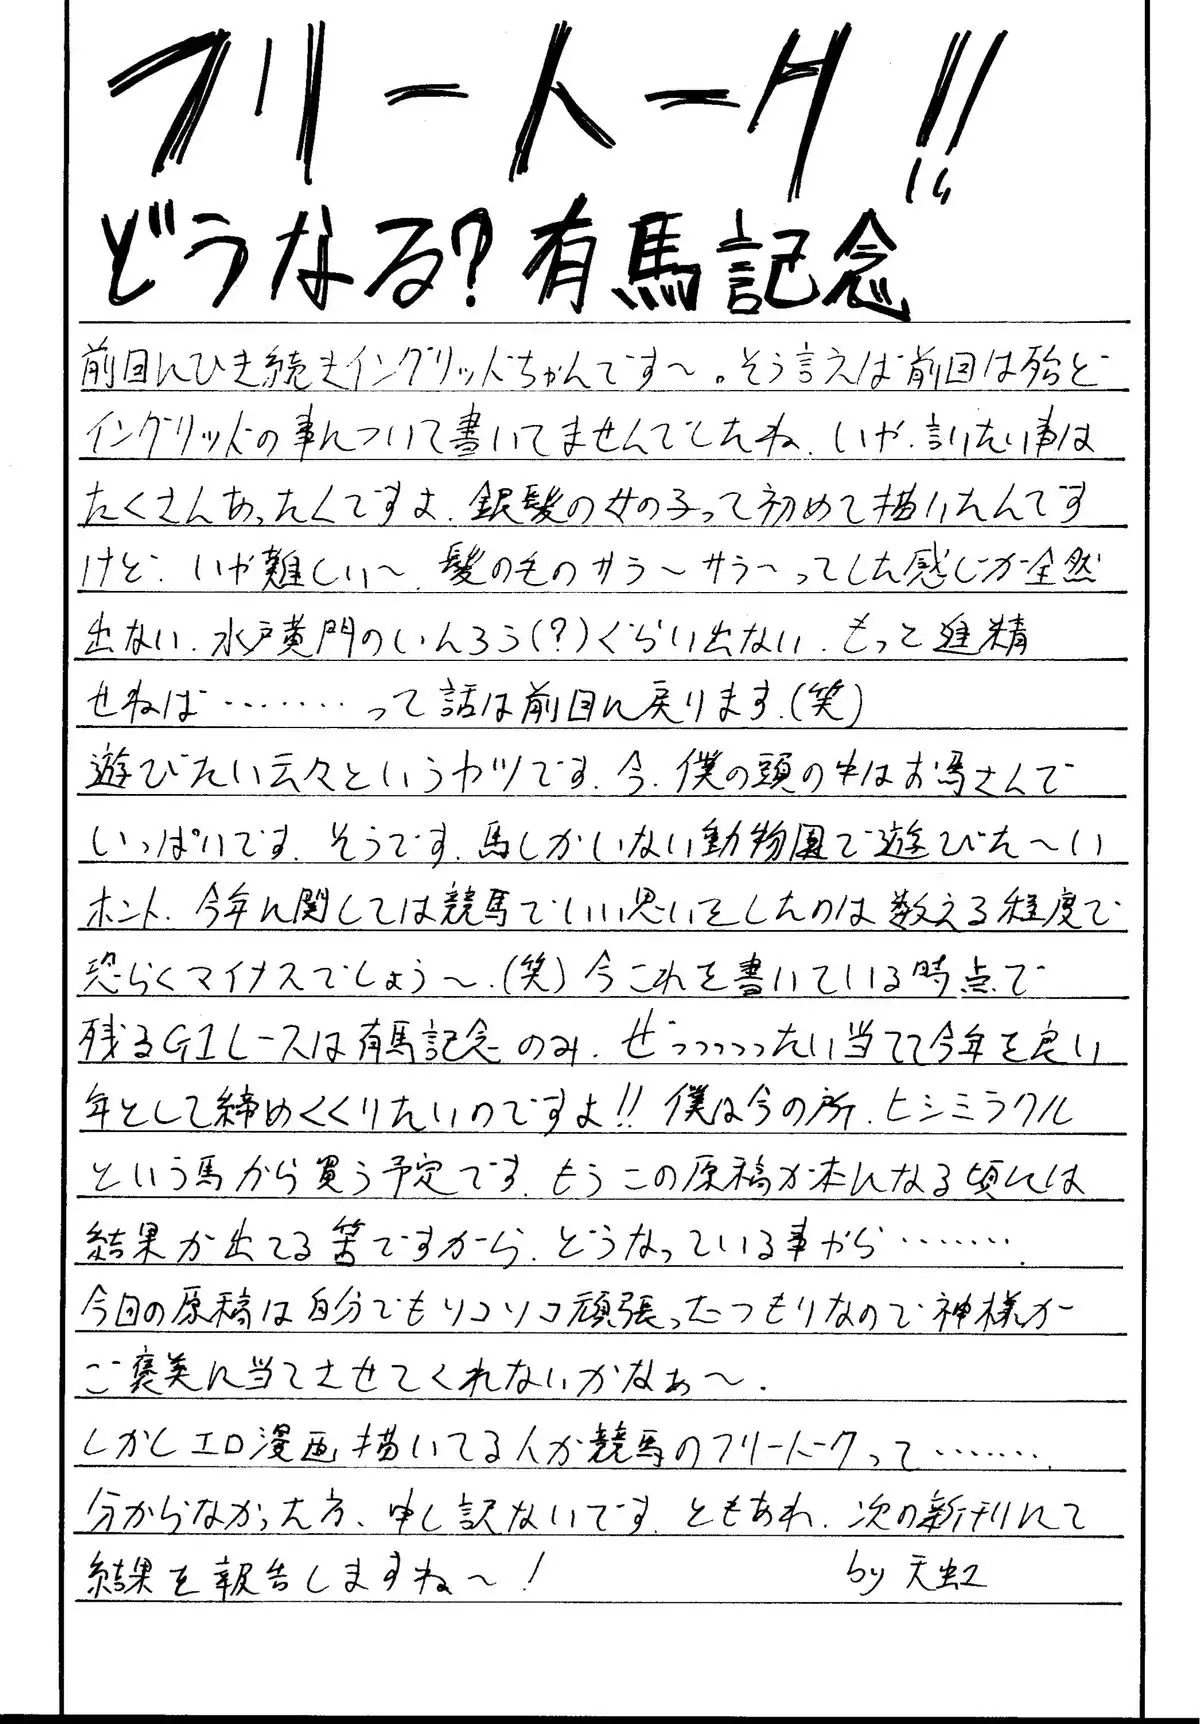 フリートーク!!
どうなる?有馬記念
前回にひき続きイングリッドちゃんです〜。そう言えば前回は殆ど
イングリッドの事について書いてませんでしたね、いや、語りたい事は
たくさんあったんですよ、銀髪の女の子って初めて描いたんです
けど、いや難しい〜、髪の毛のサラ〜サラ〜ってした感じが全然
出ない、水戸黄門のいんろう(?)ぐらい出ない、もっと進精
せねば………って話は前回に戻ります、(笑)
遊びたい云々というヤツです、今、僕の頭の中はお馬さんで
いっぱいです、そうです、馬しかいない動物園で遊びた〜い
ホント、今年に関しては競馬でいい思いをしたのは数える程度で
恐らくマイナスでしょう〜、(笑)今これを書いている時点で
残るG1レースは有馬記念のみ、ぜっっっっったい当てて今年を良い
年として締めくくりたいのですよ!!僕は今の所、ヒシミラクル
という馬から買う予定です、もうこの原稿が本になる頃には
結果が出てる筈ですから、どうなっている事やら………
今回の原稿は自分でもソコソコ頑張ったつもりなので神様が
ご褒美に当てさせてくれないかなぁ〜、
しかしエロ漫画描いてる人が競馬のフリートークって………
分からなかった方、申し訳ないです、ともあれ、次の新刊にて
結果を報告しますね〜!
by 天虹